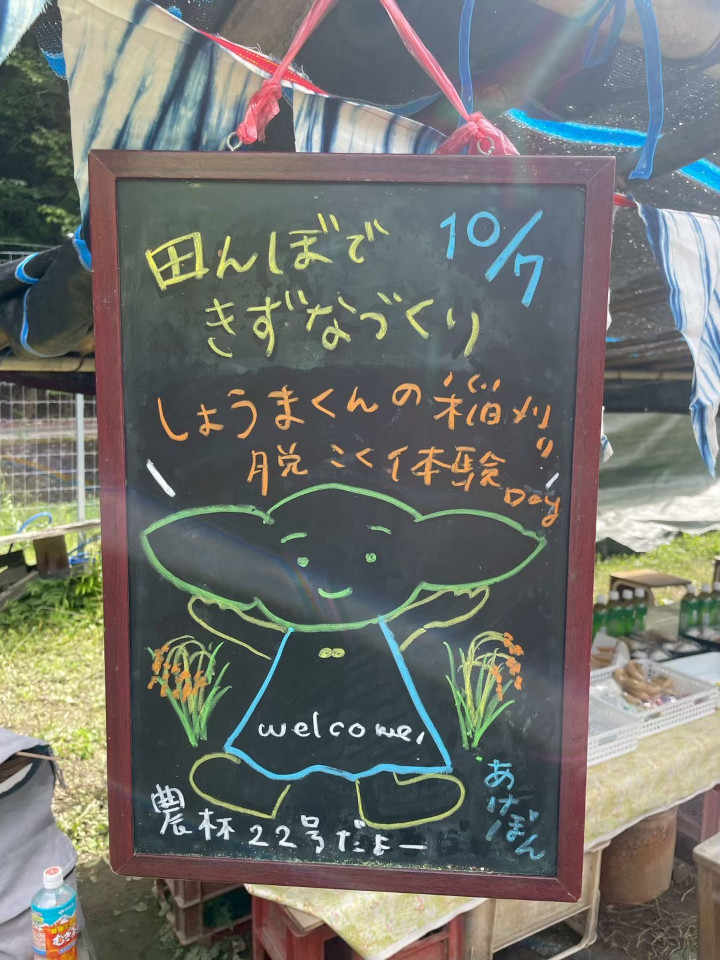 田んぼで
10/7
きずなづくり
しょうまくんの稲刈り
脱こく体験Day
welcome,
農林22号だよー
あけぼん
むぎ